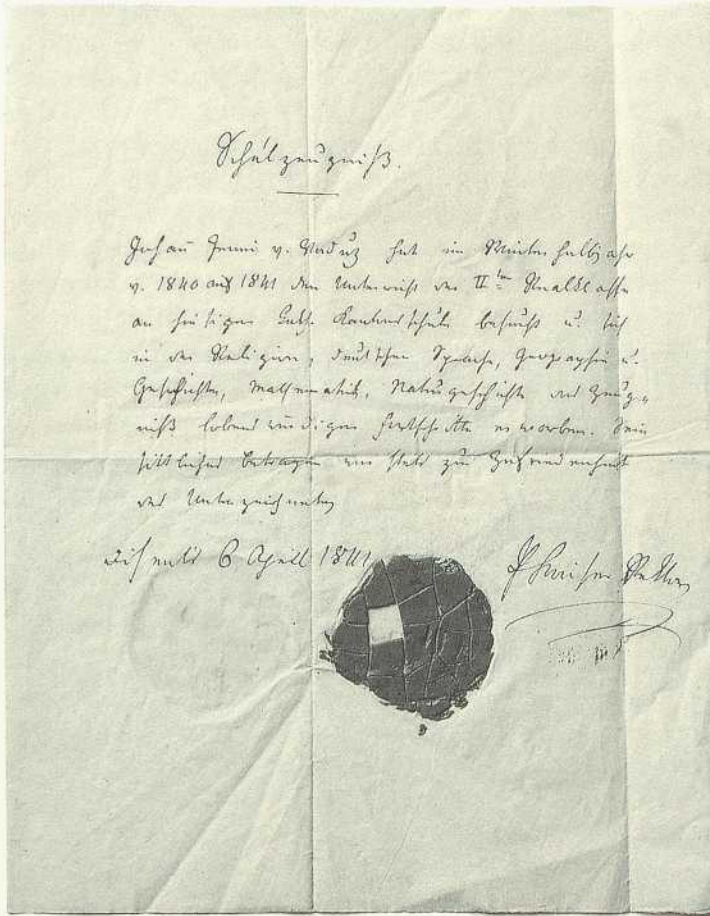 Schulzeugniß.
Johann Jenni v. Vaduz hat im Winterhalbjahr
v. 1840 auf 1841 den Unterricht der II ten Realklasse
an hiesiger Kath. Kantonsschule besucht u. sich
in der Religion, deutschen Sprache, Geographie u.
Geschichte, Mathematik, Naturgeschichte das Zeug-
niß lobenswürdiger Fortschritte erworben. Sein
sittliches Betragen war stets zur Zufriedenheit
des Unterzeichneten
Disentis 6 April 1841
P Kaiser Rektor